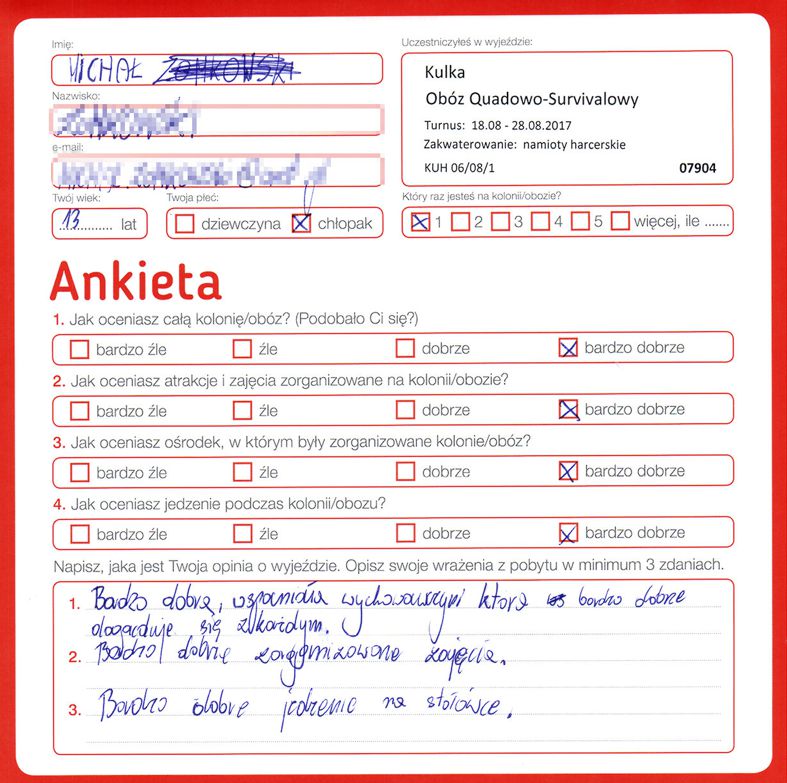 Imię:
MICHAŁ
Nazwisko:
e-mail:
Twój wiek:
13 lat
Twoja płeć:
dziewczyna chłopak
Uczestniczyłeś w wyjeździe:
Kulka
Obóz Quadowo-Survivalowy
Turnus: 18.08 - 28.08.2017
Zakwaterowanie: namioty harcerskie
KUH 06/08/1 07904
Który raz jesteś na kolonii/obozie?
1 2 3 4 5 więcej, ile .......
Ankieta
1. Jak oceniasz całą kolonię/obóz? (Podobało Ci się?)
bardzo źle źle dobrze bardzo dobrze
2. Jak oceniasz atrakcje i zajęcia zorganizowane na kolonii/obozie?
bardzo źle źle dobrze bardzo dobrze
3. Jak oceniasz ośrodek, w którym były zorganizowane kolonie/obóz?
bardzo źle źle dobrze bardzo dobrze
4. Jak oceniasz jedzenie podczas kolonii/obozu?
bardzo źle źle dobrze bardzo dobrze
Napisz, jaka jest Twoja opinia o wyjeździe. Opisz swoje wrażenia z pobytu w minimum 3 zdaniach.
1. Bardzo dobre, wspaniała wychowawczyni która bardzo dobrze
dogaduje się z każdym.
2. Bardzo dobrze zorganizowane zajęcia.
3. Bardzo dobre jedzenie na stołówce.